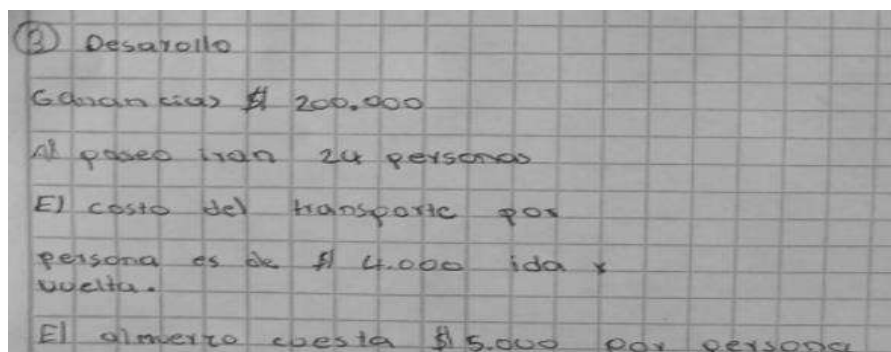 ③ Desarollo
Ganancias $ 200.000
Al paseo iran 24 personas
El costo del transporte por
persona es de $ 4.000 ida y
vuelta.
El almerzo cuesta $ 5.000 por persona